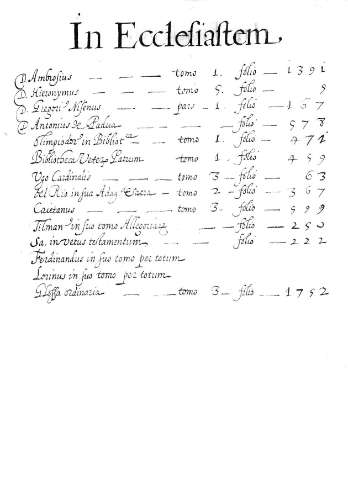 In Ecclesiastem
D. Ambrosius — — — tomo 1. folio — 1391
D. Hieronymus — — — tomo 5. folio — 8
D. Gregori⁹ Nisenus — pars — 1. folio — 167
D. Antonius de Padua — folio — 578
Olimpiodor⁹ in Bibliot — tomo 1. folio — 471
Bibliotheca Veter Patrum — tomo 1. folio — 459
Ugo Cardinalis — — — tomo 3 — folio — 63
Del Rio in sua Adag — tomo — 2 — folio — 367
Caetanus — — — tomo 3 — folio — 599
Tilman⁹ in suo tomo Allegoriar — folio — 250
Sa. in vetus testamentum — folio — 222
Ferdinandus in suo tomo per totum
Lorinus in suo tomo per totum
Glossa ordinaria — — tomo 3 — folio — 1752